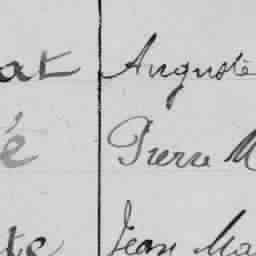 at Auguste
é Pierre M
te Jean Ma